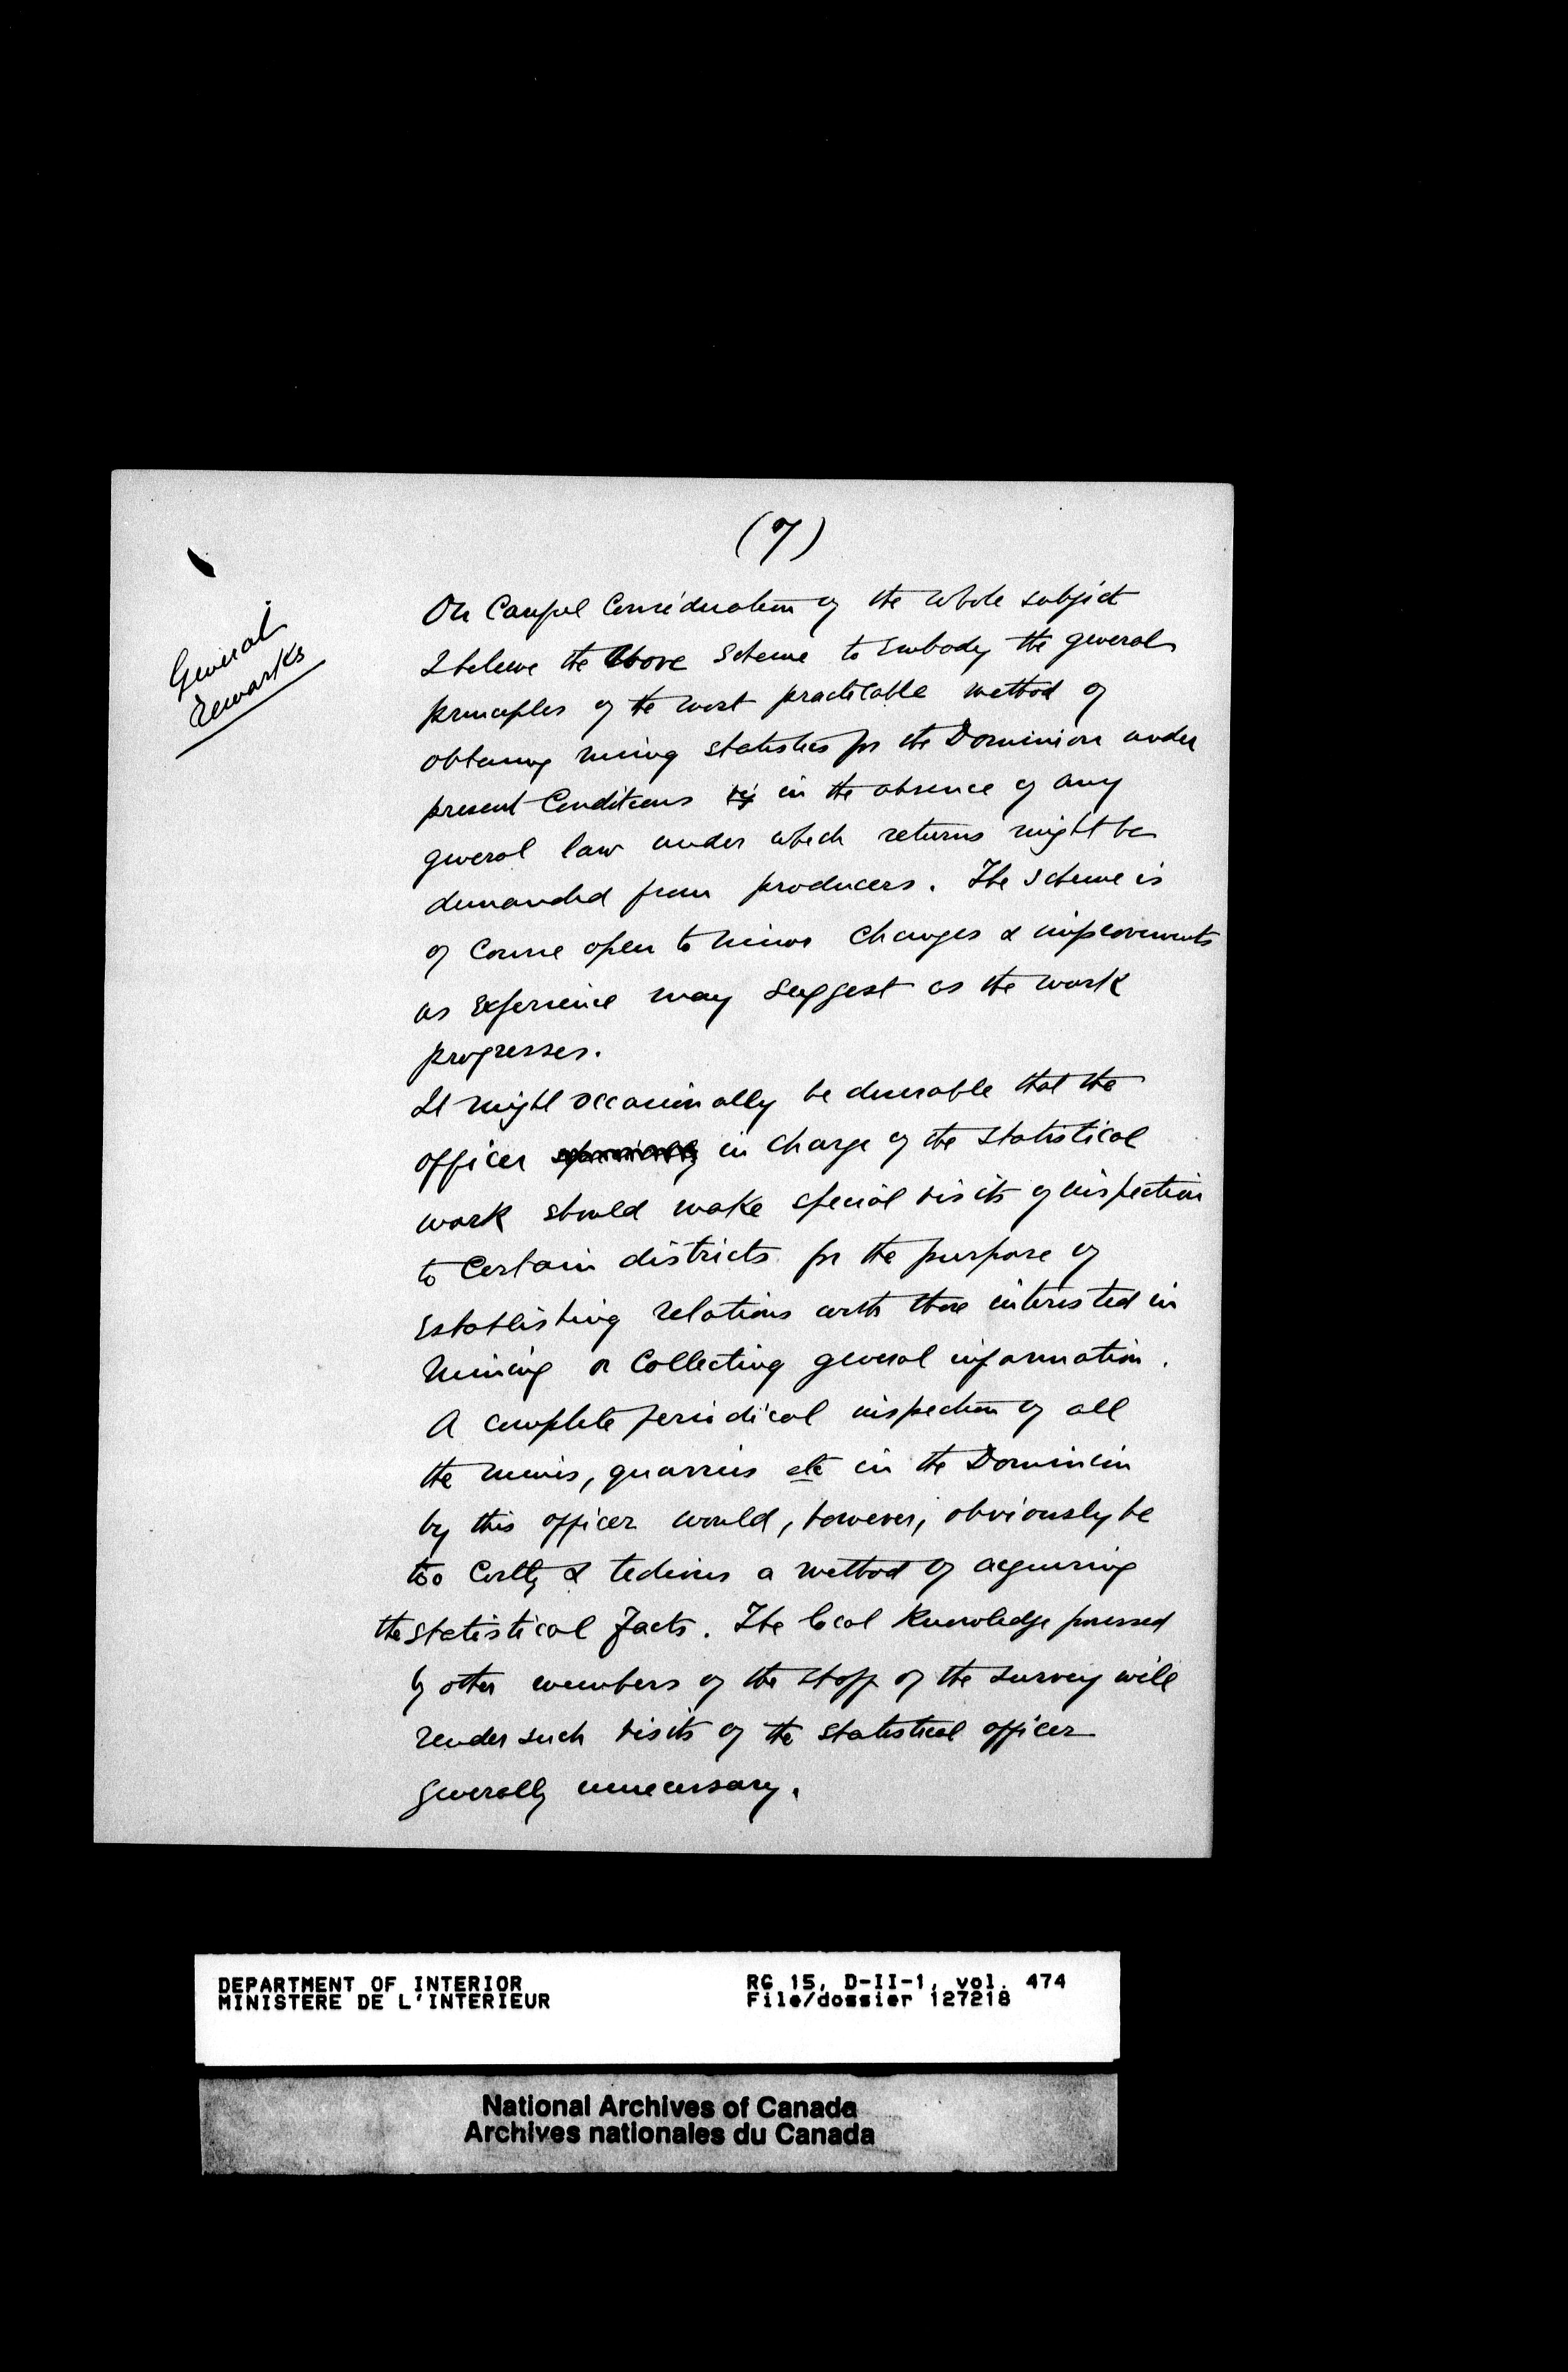 (7)
General
Remarks
On Careful Consideration of the whole subject
I believe the above Scheme to Embody the general
principles of the most practicable method of
obtaining mining statistics for the Dominion under
present Conditions in the absence of any
general law under which returns might be
demanded from producers. The scheme is
of Course open to minor Changes & improvements
as Experience may Suggest as the work
progresses.
It might occasionally be desirable that the
officer in charge of the statistical
work should make special visits of inspection
to Certain districts for the purpose of
Establishing relations with those interested in
Mining or Collecting general information.
A complete periodical inspection of all
the mines, quarries etc in the Dominion
by this officer would, however, obviously be
too Costly & tedious a method of acquiring
the statistical facts. The local Knowledge possessed
by other members of the staff of the survey will
render such visits of the statistical officer
generally unnecessary.
DEPARTMENT OF INTERIOR
MINISTERE DE L'INTERIEUR
RG 15, D-II-1, vol. 474
File/dossier 127218
National Archives of Canada
Archives nationales du Canada